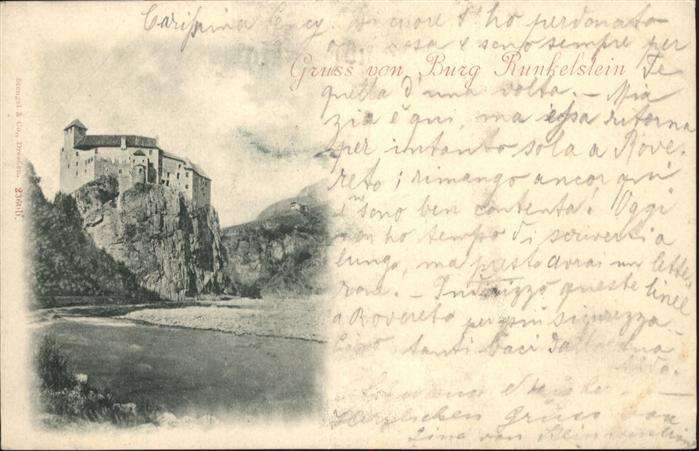 Carissima Cucy. Di cuore t'ho perdonato
ogni cosa e sono sempre per
Gruss von Burg Runkelstein
Te
quella d'una volta. – Mia
zia è qui, ma essa ritorna
per intanto sola a Rove-
reto; rimango ancor qui
e sono ben contenta. Oggi
non ho tempo di scriverti a
lungo, ma presto avrai un lette-
rone. – Indirizzo queste linee
a Rovereto per più sicurezza.
tanti baci dalla tua
Herzlichen Gruss von
Lina von
Stengel & Co., Dresden. 2660.